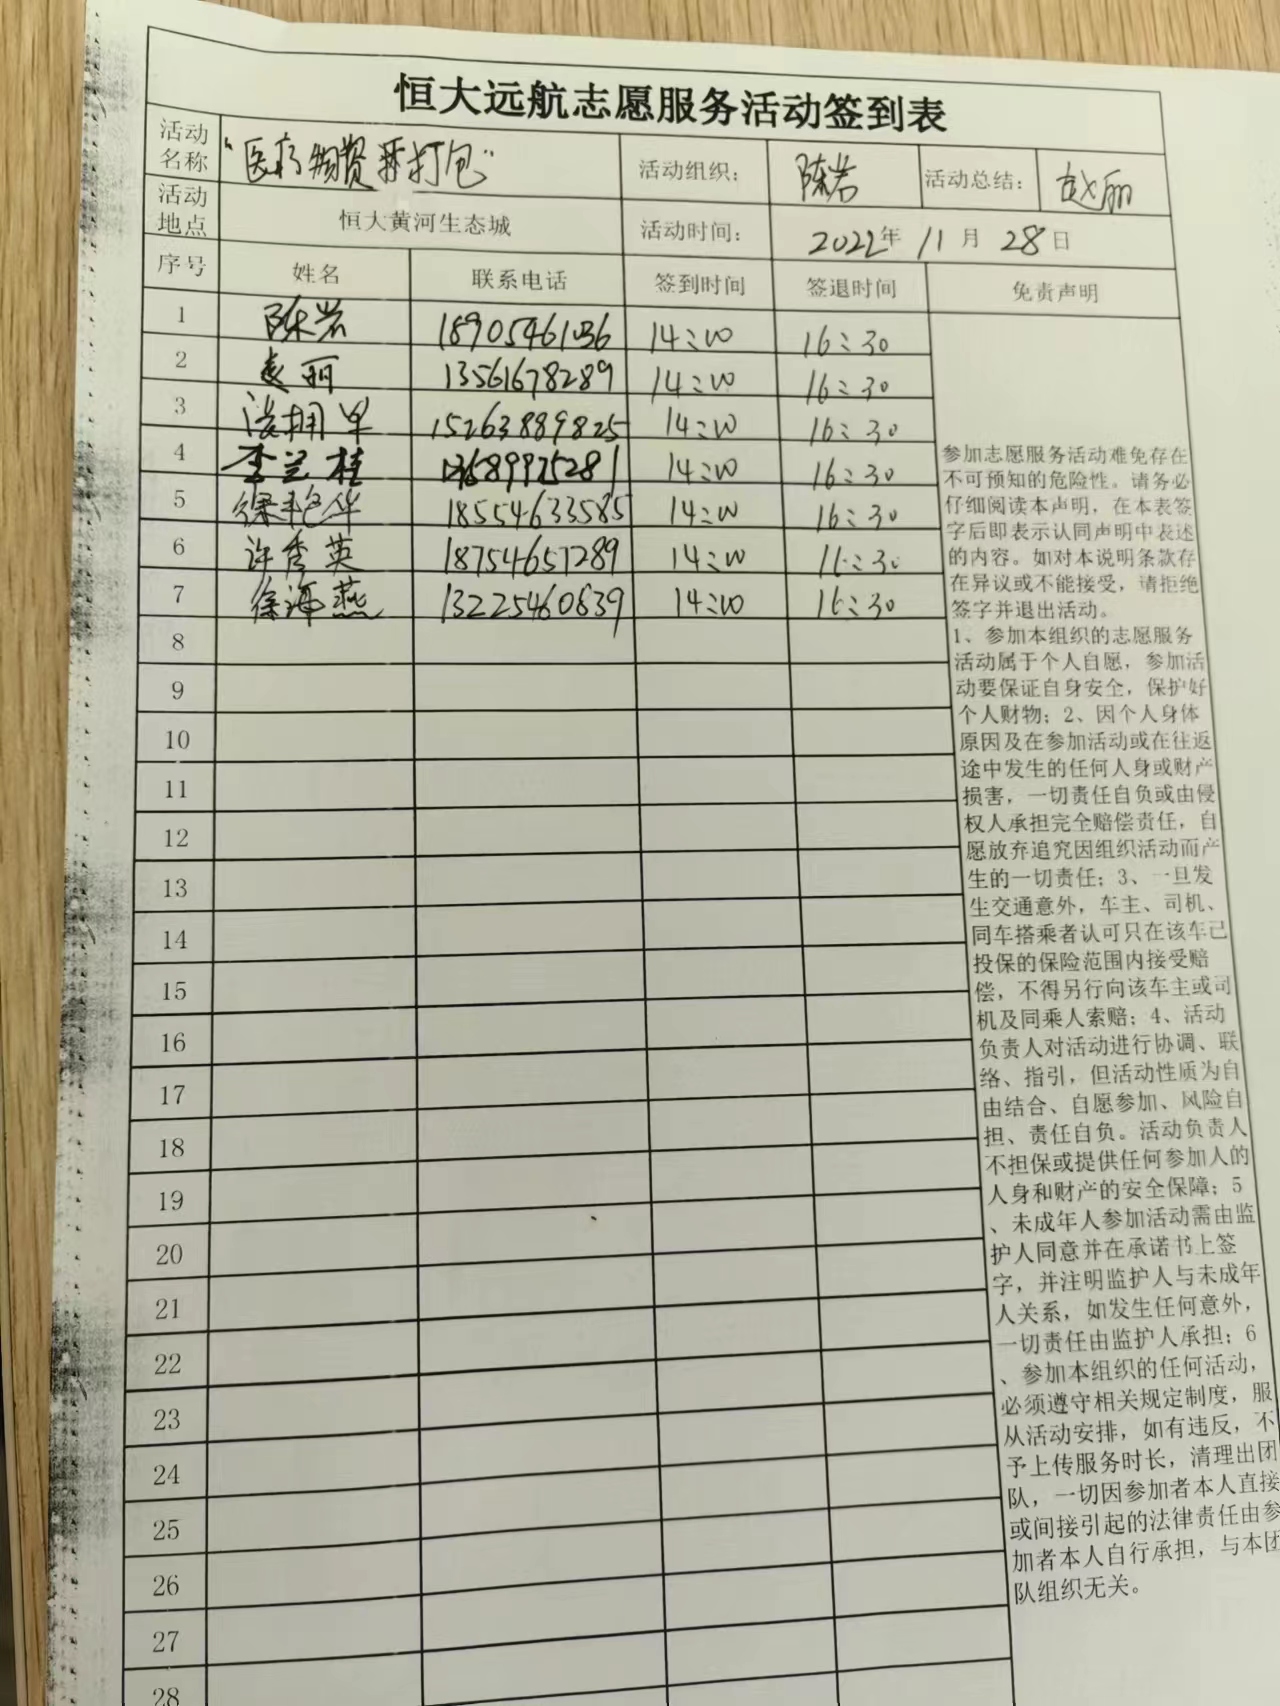 恒大远航志愿服务活动签到表
活动名称 "医疗物资打包" 活动组织： 陈岩 活动总结： 赵丽
活动地点 恒大黄河生态城 活动时间： 2022年 11月 28日
序号 姓名 联系电话 签到时间 签退时间 免责声明
1 陈岩 18905461036 14:00 16:30
2 赵丽 13561678289 14:00 16:30
3 15263889825 14:00 16:30
4 李兰桂 14:00 16:30
5 徐艳华 18554633585 14:00 16:30
6 许秀英 18754657289 14:00 16:30
7 徐海燕 13225460639 14:00 16:30
8
9
10
11
12
13
14
15
16
17
18
19
20
21
22
23
24
25
26
27
28
参加志愿服务活动难免存在
不可预知的危险性。请务必
仔细阅读本声明，在本表签
字后即表示认同声明中表述
的内容。如对本说明条款存
在异议或不能接受，请拒绝
签字并退出活动。
1、参加本组织的志愿服务
活动属于个人自愿，参加活
动要保证自身安全，保护好
个人财物；2、因个人身体
原因及在参加活动或在往返
途中发生的任何人身或财产
损害，一切责任自负或由侵
权人承担完全赔偿责任，自
愿放弃追究因组织活动而产
生的一切责任；3、一旦发
生交通意外，车主、司机、
同车搭乘者认可只在该车已
投保的保险范围内接受赔
偿，不得另行向该车主或司
机及同乘人索赔；4、活动
负责人对活动进行协调、联
络、指引，但活动性质为自
由结合、自愿参加、风险自
担、责任自负。活动负责人
不担保或提供任何参加人的
人身和财产的安全保障；5
、未成年人参加活动需由监
护人同意并在承诺书上签
字，并注明监护人与未成年
人关系，如发生任何意外，
一切责任由监护人承担；6
、参加本组织的任何活动，
必须遵守相关规定制度，服
从活动安排，如有违反，不
予上传服务时长，清理出团
队，一切因参加者本人直接
或间接引起的法律责任由参
加者本人自行承担，与本团
队组织无关。